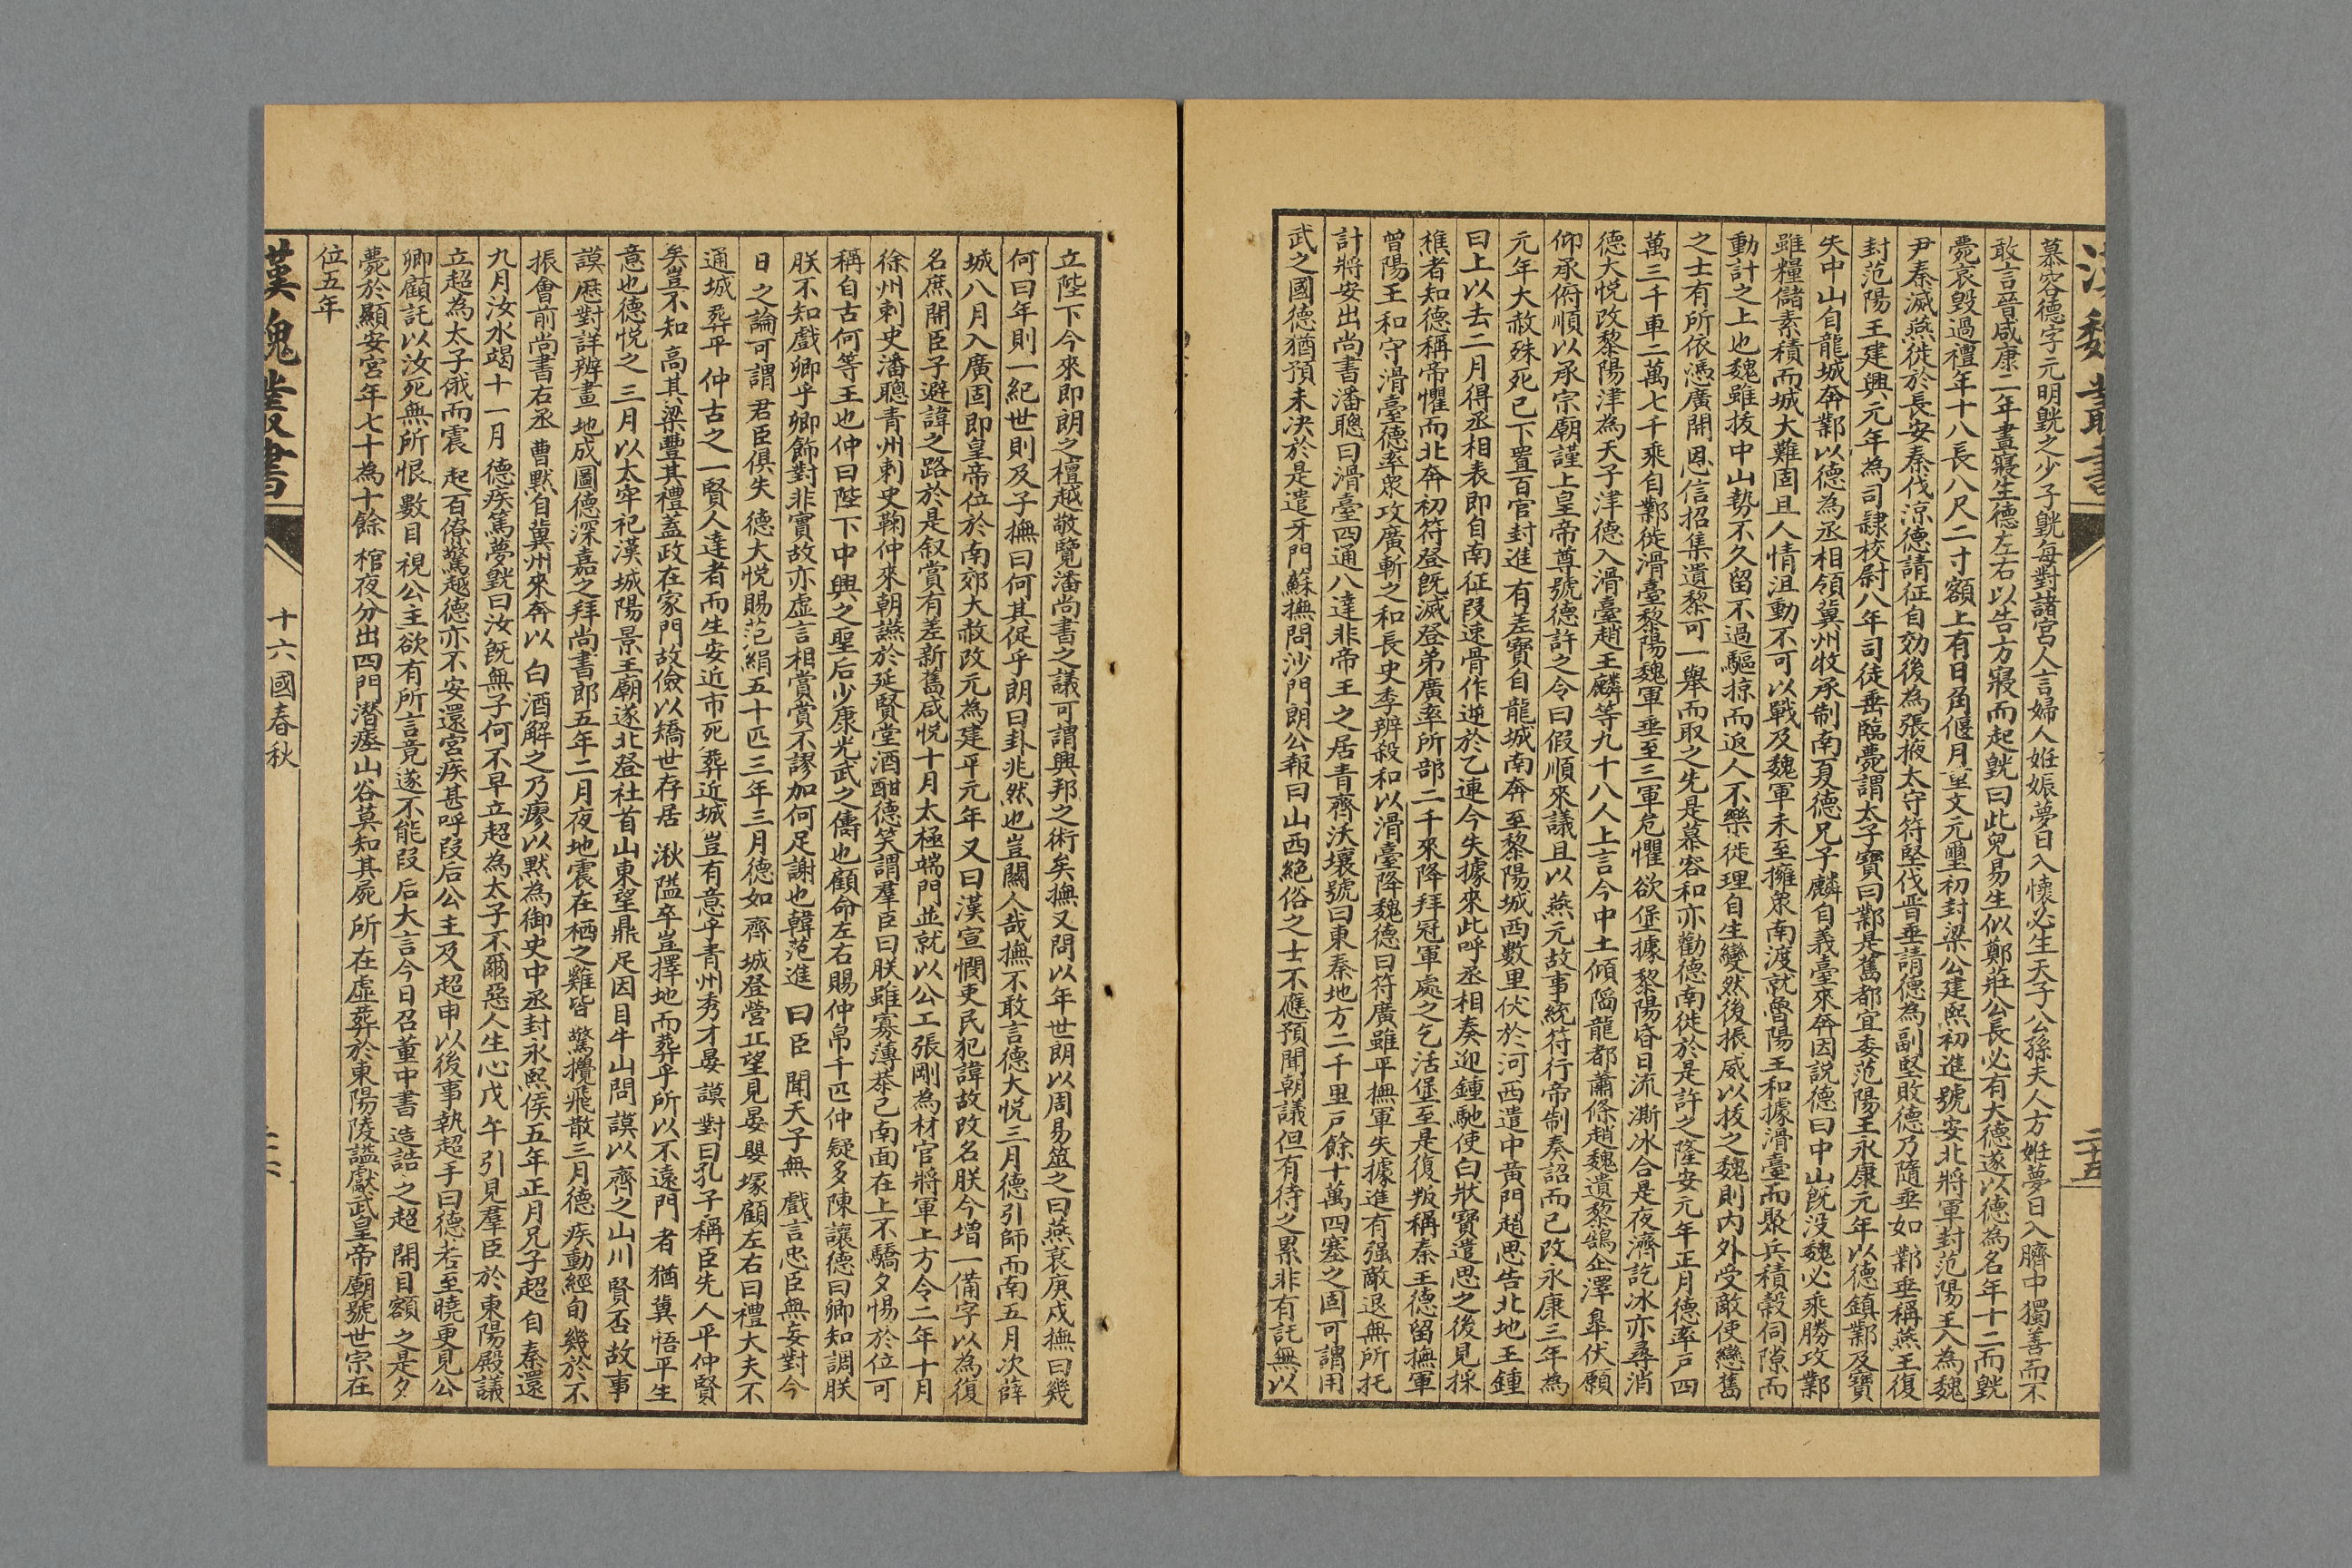 漢魏叢書
二十五
慕容德字元明皝之少子皝每對諸宮人言婦人姙娠夢日入懷必生天子公孫夫人方姙夢日入臍中獨善而不
敢言晉咸康二年晝寢生德左右以告方寢而起皝曰此兒易生似鄭莊公長必有大德遂以德為名年十二而皝
薨哀毀過禮年十八長八尺二寸額上有日角偃月重文元璽初封梁公建熙初進號安北將軍封范陽王入為魏
尹秦滅燕徙於長安秦伐涼德請征自効後為張掖太守符堅伐晋垂請德為副堅敗德乃隨垂如鄴垂稱燕王復
封范陽王建興元年為司隸校尉八年司徒垂臨薨謂太子寶曰鄴是舊都宜委范陽王永康元年以德鎮鄴及寶
失中山自龍城奔鄴以德為丞相領冀州牧承制南夏德兄子麟自義臺來奔因説德曰中山既没魏必乘勝攻鄴
雖糧儲素積而城大難固且人情沮動不可以戰及魏軍未至擁衆南渡就魯陽王和據滑臺而聚兵積穀伺隙而
動計之上也魏雖拔中山勢不久留不過驅掠而返人不樂徙理自生變然後振威以拔之魏則内外受敵使戀舊
之士有所依憑廣開恩信招集遺黎可一舉而取之先是慕容和亦勸德南徙於是許之隆安元年正月德率戶四
萬三千車二萬七千乘自鄴徙滑臺黎陽魏軍垂至三軍危懼欲堡據黎陽昏日流澌冰合是夜濟訖冰亦尋消
德大悦改黎陽津為天子津德入滑臺趙王麟等九十八人上言今中土傾陷龍都蕭條趙魏遺黎鵠企澤皐伏願
仰承俯順以承宗廟謹上皇帝尊號德許之令曰假順來議且以燕元故事統符行帝制奏詔而已改永康三年為
元年大赦殊死已下置百官封進有差寶自龍城南奔至黎陽城西數里伏於河西遣中黄門趙思告北地王鍾
曰上以去二月得丞相表即自南征段速骨作逆於乙連今失據來此呼丞相奏迎鍾馳使白狀寶遣思之後見採
樵者知德稱帝懼而北奔初符登既滅登弟廣率所部二千來降拜冠軍處之乞活堡至是復叛稱秦王德留撫軍
曾陽王和守滑臺德率衆攻廣斬之和長史李辨殺和以滑臺降魏德曰符廣雖平撫軍失據進有强敵退無所托
計將安出尚書潘聰曰滑臺四通八達非帝王之居青齊沃壤號曰東秦地方二千里戸餘十萬四塞之固可謂用
武之國德猶預未決於是遣牙門蘇撫問沙門朗公報曰山西絶俗之士不應預聞朝議但有待之累非有託無以
立陛下今來即朗之檀越敬覽潘尚書之議可謂興邦之術矣撫又問以年世朗以周易筮之曰燕衰庚戌撫曰幾
何曰年則一紀世則及子撫曰何其促乎朗曰卦兆然也豈關人哉撫不敢言德大悦三月德引師而南五月次薛
城八月入廣固即皇帝位於南郊大赦改元為建平元年又曰漢宣憫吏民犯諱故改名朕今增一備字以為復
名庶開臣子避諱之路於是叙賞有差新舊咸悦十月太極端門並就以公工張剛為材官將軍上方令二年十月
徐州刺史潘聰青州刺史鞠仲來朝讌於延賢堂酒酣德笑謂羣臣曰朕雖寡薄恭己南面在上不驕夕惕於位可
稱自古何等王也仲曰陛下中興之聖后少康光武之儔也顧命左右賜仲帛千匹仲疑多陳讓德曰卿知調朕
朕不知戲卿乎卿飾對非實故亦虛言相賞賞不謬加何足謝也韓范進曰臣聞天子無戲言忠臣無妄對今
日之論可謂君臣俱失德大悦賜范絹五十匹三年三月德如齊城登營丘望見晏嬰塚顧左右曰禮大夫不
通城葬平仲古之一賢人達者而生安近市死葬近城豈有意乎青州秀才晏謨對曰孔子稱臣先人平仲賢
矣豈不知高其梁豐其禮蓋政在家門故儉以矯世存居湫隘卒豈擇地而葬乎所以不遠門者猶冀悟平生
意也德悦之三月以太牢祀漢城陽景王廟遂北登社首山東望鼎足因目牛山問謨以齊之山川賢否故事
謨歷對詳辨畫地成圖德深嘉之拜尚書郎五年二月夜地震在栖之雞皆驚攪飛散三月德疾動經旬幾於不
振會前尚書右丞曹默自冀州來奔以白酒解之乃瘳以默為御史中丞封永熙侯五年正月兄子超自秦還
九月汝水竭十一月德疾篤夢皝曰汝既無子何不早立超為太子不爾惡人生心戊午引見羣臣於東陽殿議
立超為太子俄而震起百僚驚越德亦不安還宮疾甚呼段后公主及超申以後事執超手曰德若至曉更見公
卿顧託以汝死無所恨數目視公主欲有所言竟遂不能段后大言今日召董中書造誥之超開目額之是夕
薨於顯安宮年七十為十餘棺夜分出四門潜瘞山谷莫知其屍所在虛葬於東陽陵謚獻武皇帝廟號世宗在
位五年
漢魏叢書
十六國春秋